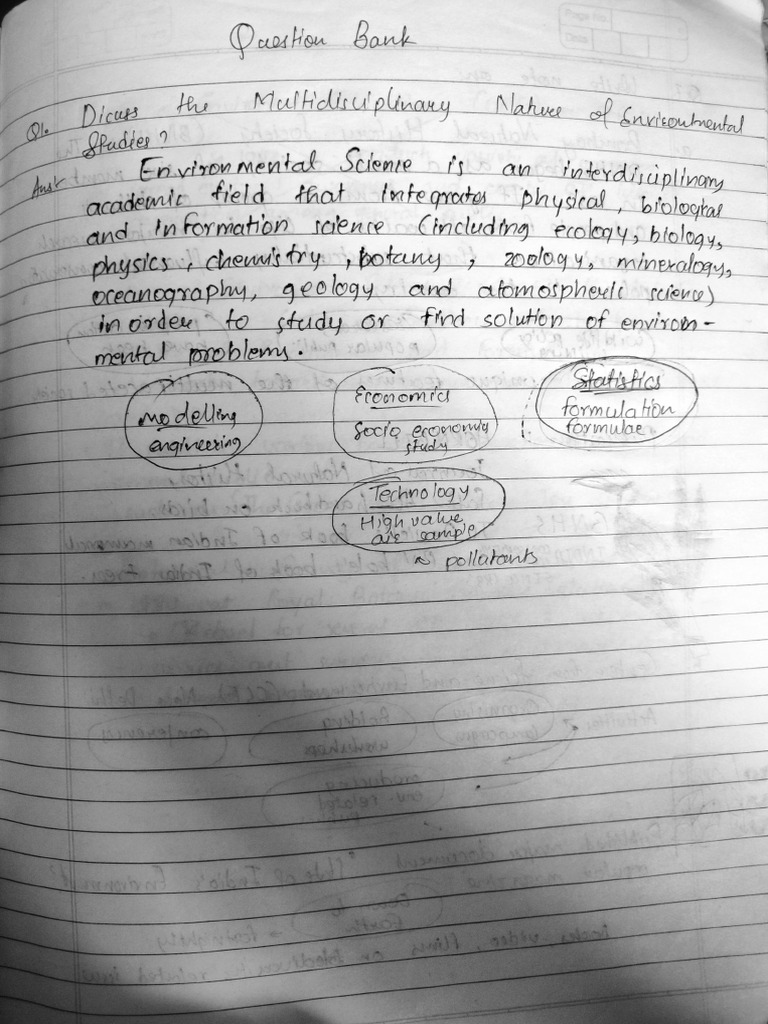 Question Bank
Q1. Dicuss the Multidisciplinary Nature of Envirounmental
Studies?
Ans: Environmental Science is an interdisciplinary
academic field that integrates physical, biological
and information science (including ecology, biology,
physics, chemistry, botany, zoology, mineralogy,
oceanography, geology and atomospheric science)
in order to study or find solution of environ-
mental problems.
modelling
engineering
Economics
Socio economy
study
Statistics
formulation
formulae
Technology
High value
air sample
~ pollutants